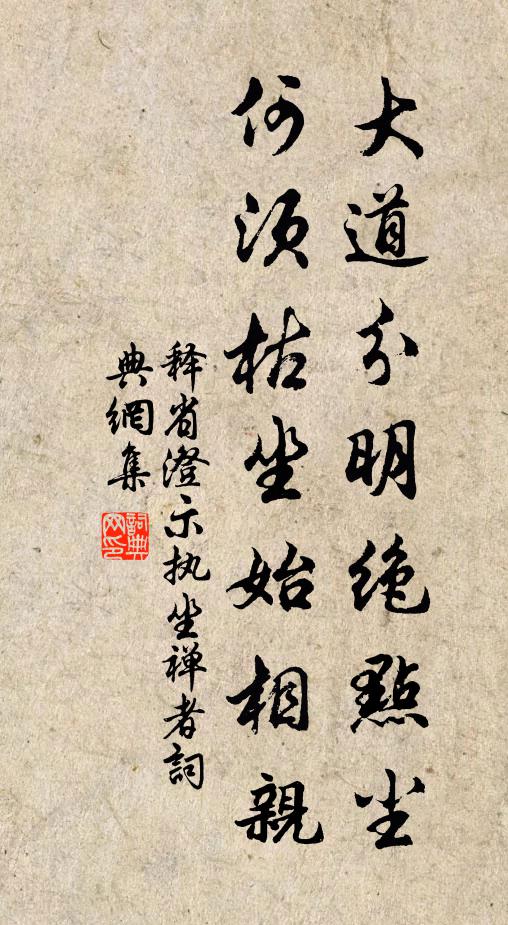 大道分明绝點尘
何须枯坐始相親
释省澄示执坐禅者詞
典網集
詞典
网印